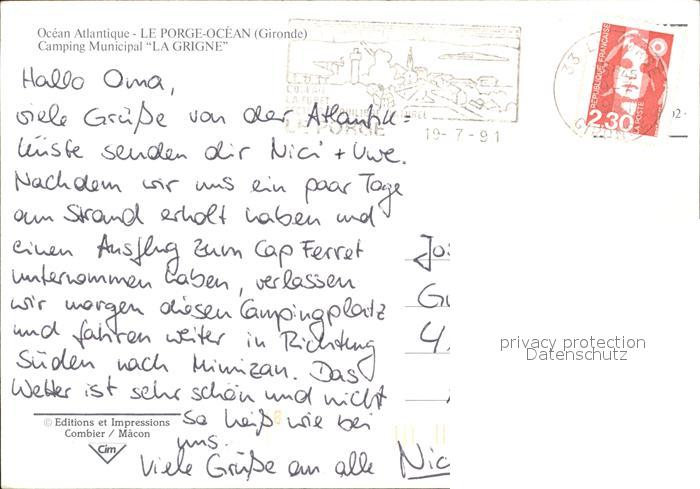 Océan Atlantique - LE PORGE-OCÉAN (Gironde)
Camping Municipal "LA GRIGNE"
Hallo Oma,
viele Grüße von der Atlantik=
küste senden dir Nici + Uwe.
Nachdem wir uns ein paar Tage
am Strand erholt haben und
einen Ausflug zum Cap Ferret
unternommen haben, verlassen
wir morgen diesen Campingplatz
und fahren weiter in Richtung
Süden nach Mimizan. Das
Wetter ist sehr schön und nicht
so heiß wie bei
uns.
Viele Grüße an alle Nic
LE PORGE
19-7-91
33
RÉPUBLIQUE FRANÇAISE
2,30
LA POSTE
privacy protection
Datenschutz
© Editions et Impressions
Combier / Mâcon
Cim